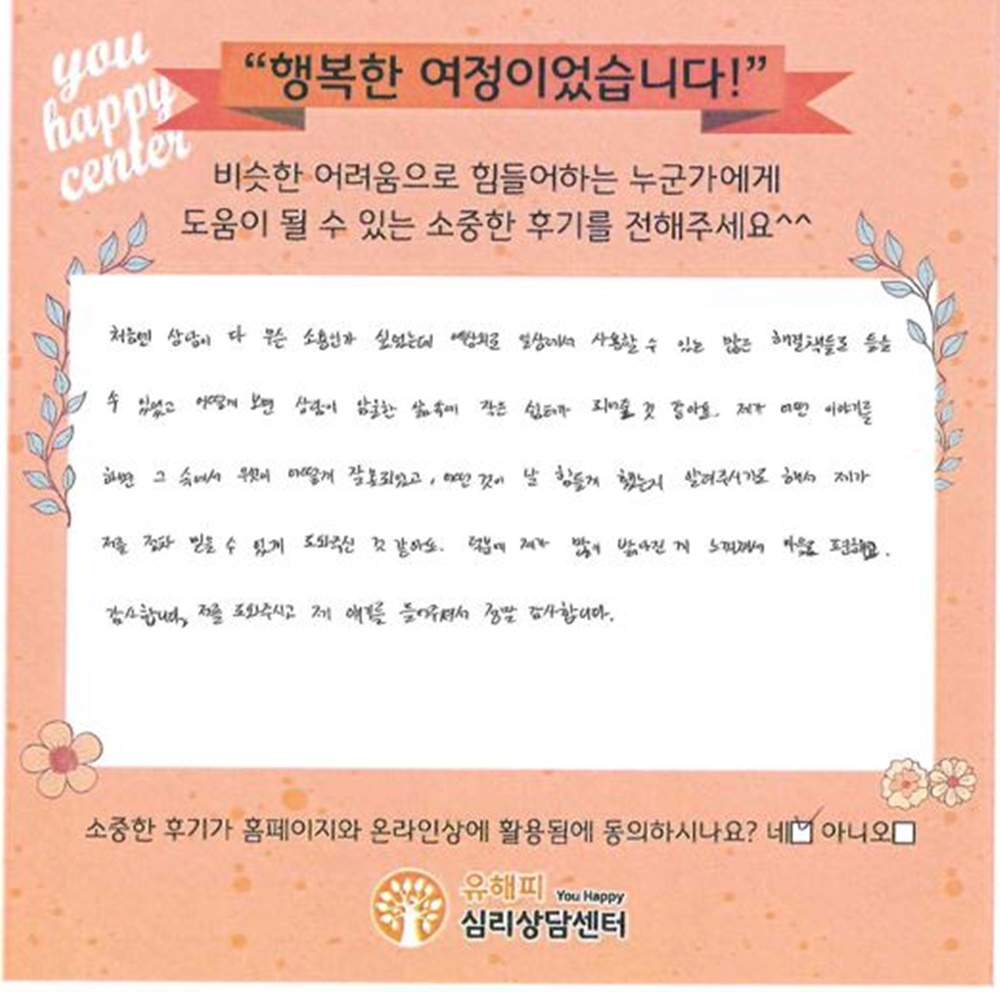 you
happy
center
“행복한 여정이었습니다!”
비슷한 어려움으로 힘들어하는 누군가에게
도움이 될 수 있는 소중한 후기를 전해주세요^^
처음엔 상담이 다 무슨 소용인가 싶었는데 예상외로 일상에서 사용할 수 있는 많은 해결책들도 들을
수 있었고 어떻게 보면 상담이 암울한 삶속에 작은 쉼터가 되어줄 것 같아요. 제가 어떤 이야기를
하면 그 속에서 무엇이 어떻게 잘못되었고, 어떤 것이 날 힘들게 했는지 알려주시기도 해서 제가
저를 점차 믿을 수 있게 도와주신 것 같아요. 덕분에 제가 많이 밝아진 게 느껴져서 마음도 편해요.
감사합니다, 저를 도와주시고 제 얘기를 들어주셔서 정말 감사합니다.
소중한 후기가 홈페이지와 온라인상에 활용됨에 동의하시나요? 네☑ 아니오☐
유해피 You Happy
심리상담센터